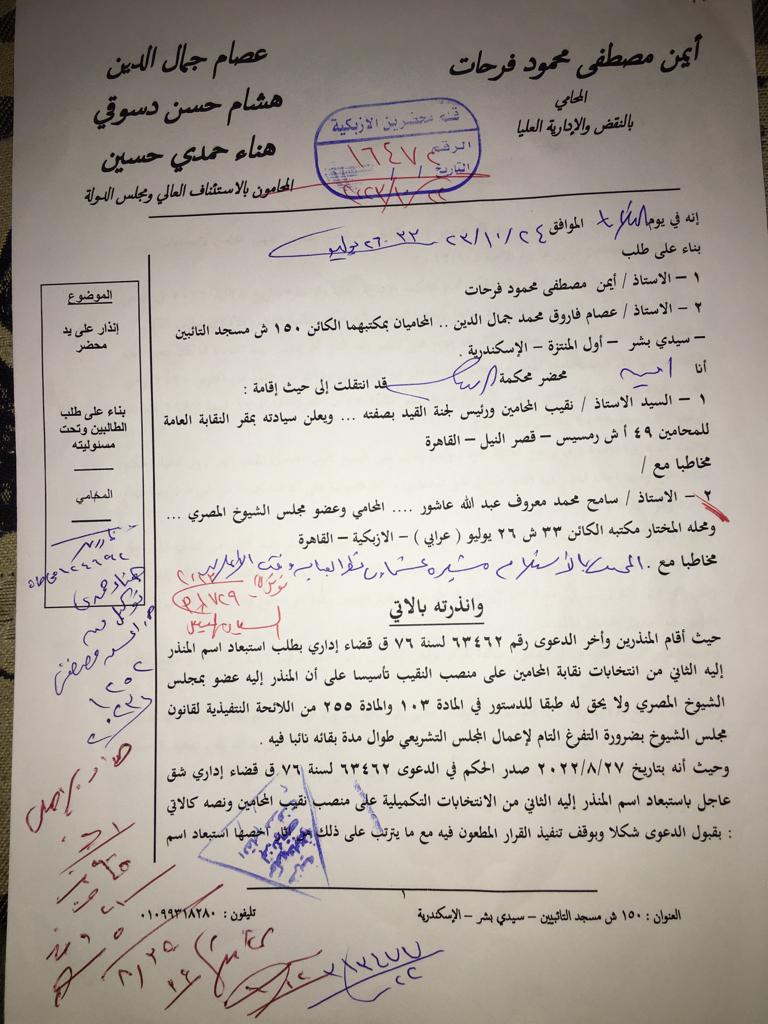 أيمن مصطفى محمود فرحات
المحامي
بالنقض والإدارية العليا
عصام جمال الدين
هشام حسن دسوقي
هناء حمدي حسين
المحامون بالاستئناف العالي ومجلس الدولة
قلم محضرين الازبكية
الرقم
التاريخ
إنه في يوم الموافق ٢٣/١٠/٢٤
بناء على طلب
١ – الاستاذ / أيمن مصطفى محمود فرحات
٢ – الاستاذ / عصام فاروق محمد جمال الدين .. المحاميان بمكتبهما الكائن ١٥٠ ش مسجد التائبين
– سيدي بشر – أول المنتزة – الإسكندرية .
أنا محضر محكمة قد انتقلت إلى حيث إقامة :
١ – السيد الاستاذ / نقيب المحامين ورئيس لجنة القيد بصفته ... ويعلن سيادته بمقر النقابة العامة
للمحامين ٤٩ أ ش رمسيس – قصر النيل – القاهرة
مخاطبا مع /
٢ – الاستاذ / سامح محمد معروف عبد الله عاشور .... المحامي وعضو مجلس الشيوخ المصري ...
ومحله المختار مكتبه الكائن ٣٣ ش ٢٦ يوليو ( عرابي ) – الازبكية – القاهرة
مخاطبا مع .
وانذرته بالاتي
حيث أقام المنذرين وأخر الدعوى رقم ٦٣٤٦٢ لسنة ٧٦ ق قضاء إداري بطلب استبعاد اسم المنذر
إليه الثاني من انتخابات نقابة المحامين على منصب النقيب تأسيسا على أن المنذر إليه عضو بمجلس
الشيوخ المصري ولا يحق له طبقا للدستور في المادة ١٠٣ والمادة ٢٥٥ من اللائحة التنفيذية لقانون
مجلس الشيوخ بضرورة التفرغ التام لإعمال المجلس التشريعي طوال مدة بقائه نائبا فيه .
وحيث أنه بتاريخ ٢٠٢٢/٨/٢٧ صدر الحكم في الدعوى ٦٣٤٦٢ لسنة ٧٦ ق قضاء إداري شق
عاجل باستبعاد اسم المنذر إليه الثاني من الانتخابات التكميلية على منصب نقيب المحامين ونصه كالاتي
: بقبول الدعوى شكلا وبوقف تنفيذ القرار المطعون فيه مع ما يترتب على ذلك من اثار اخصها استبعاد اسم
الموضوع
إنذار على يد
محضر
بناء على طلب
الطالبين وتحت
مسئوليته
المحامي
١
العنوان : ١٥٠ ش مسجد التائبين – سيدي بشر – الإسكندرية
تليفون : ٠١٠٩٩٣١٨٢٨٠